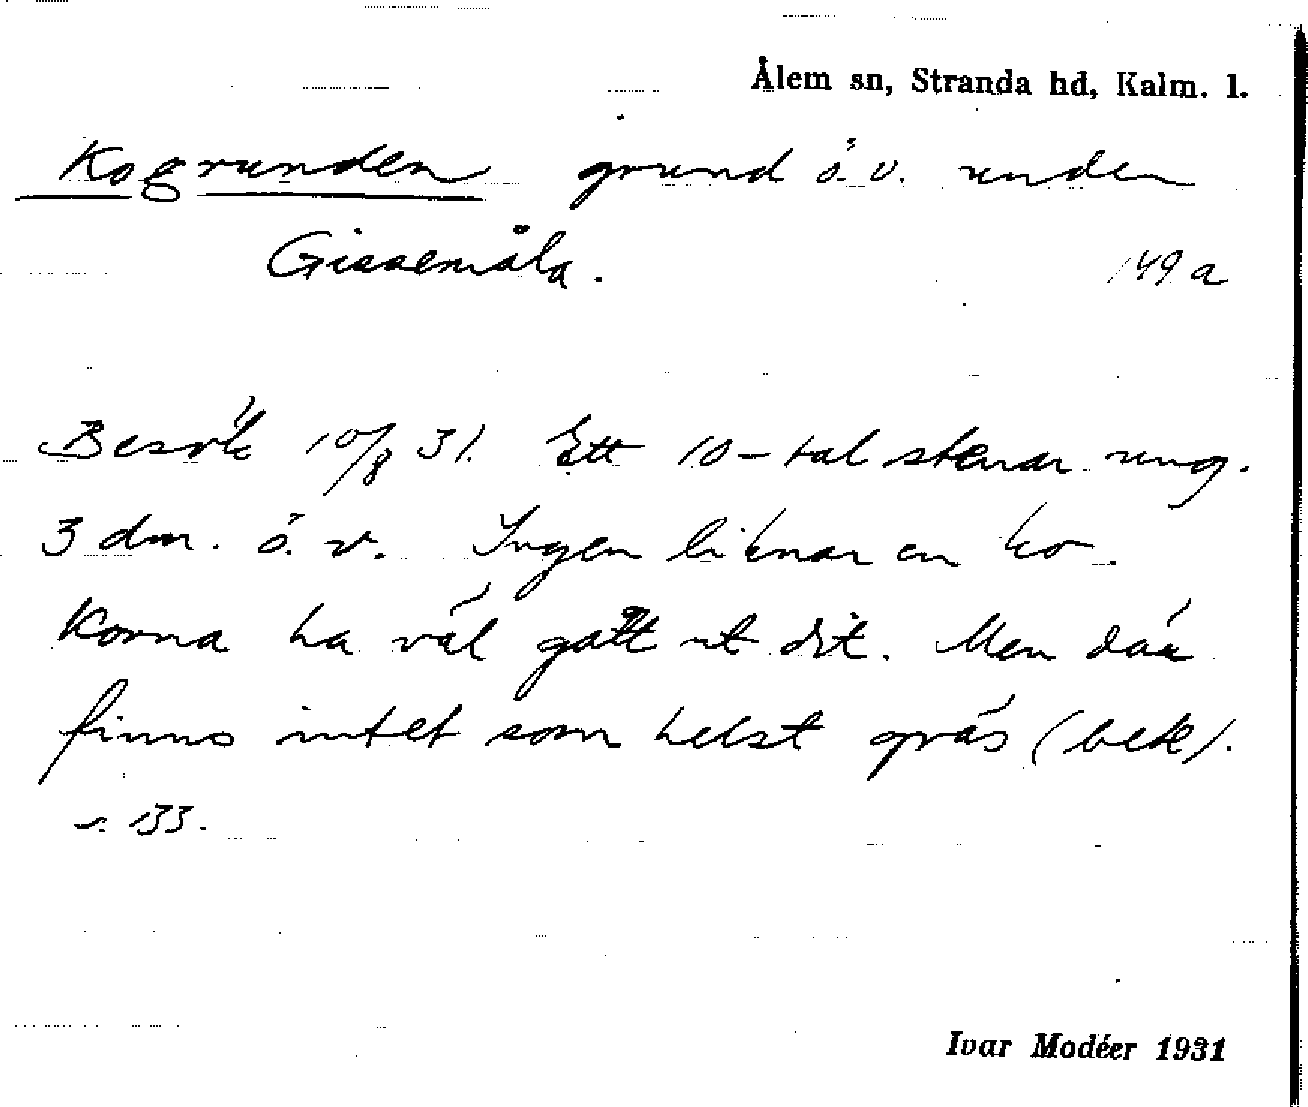 Ålem sn, Stranda hd, Kalm. l.
Kogrunden grund ö.v. under
Gissemåla.
149 a
Besök 10/8 31. Ett 10-tal stenar ung.
3 dm. ö. v. Ingen liknar en ko.
Korna ha väl gått ut dit. Men där
finns intet som helst gräs (bek).
s. 133.
Ivar Modéer 1931